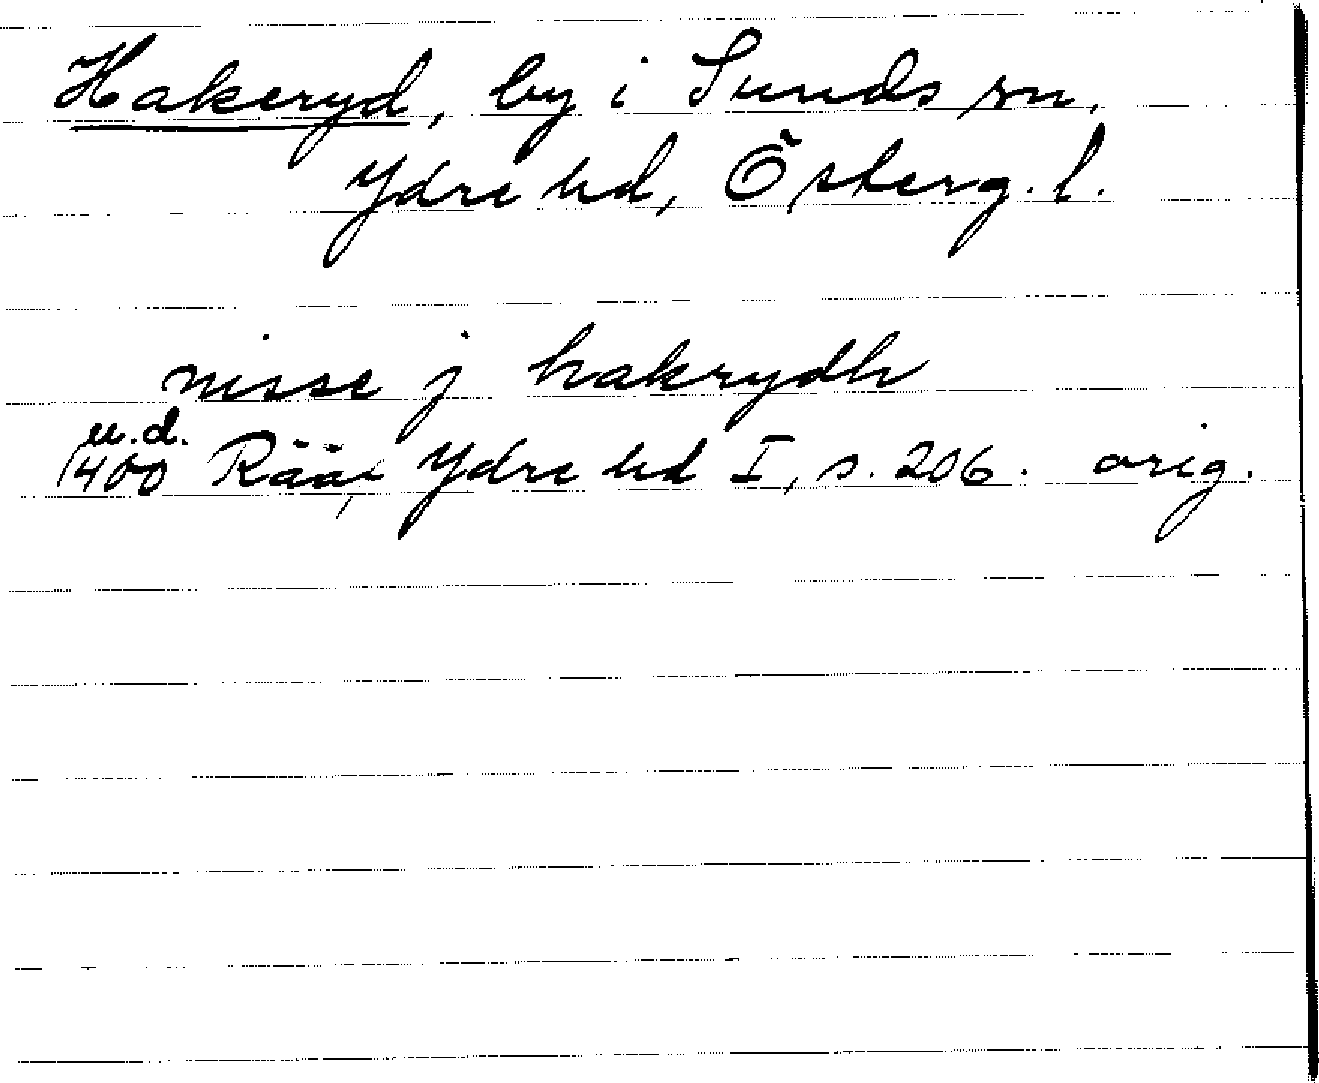 Hakeryd, by i Sunds sn,
Ydre hd, Österg. l.
nisse j hakrydh
u.d.
1400 Rääf, Ydre hd I, s. 206. orig.